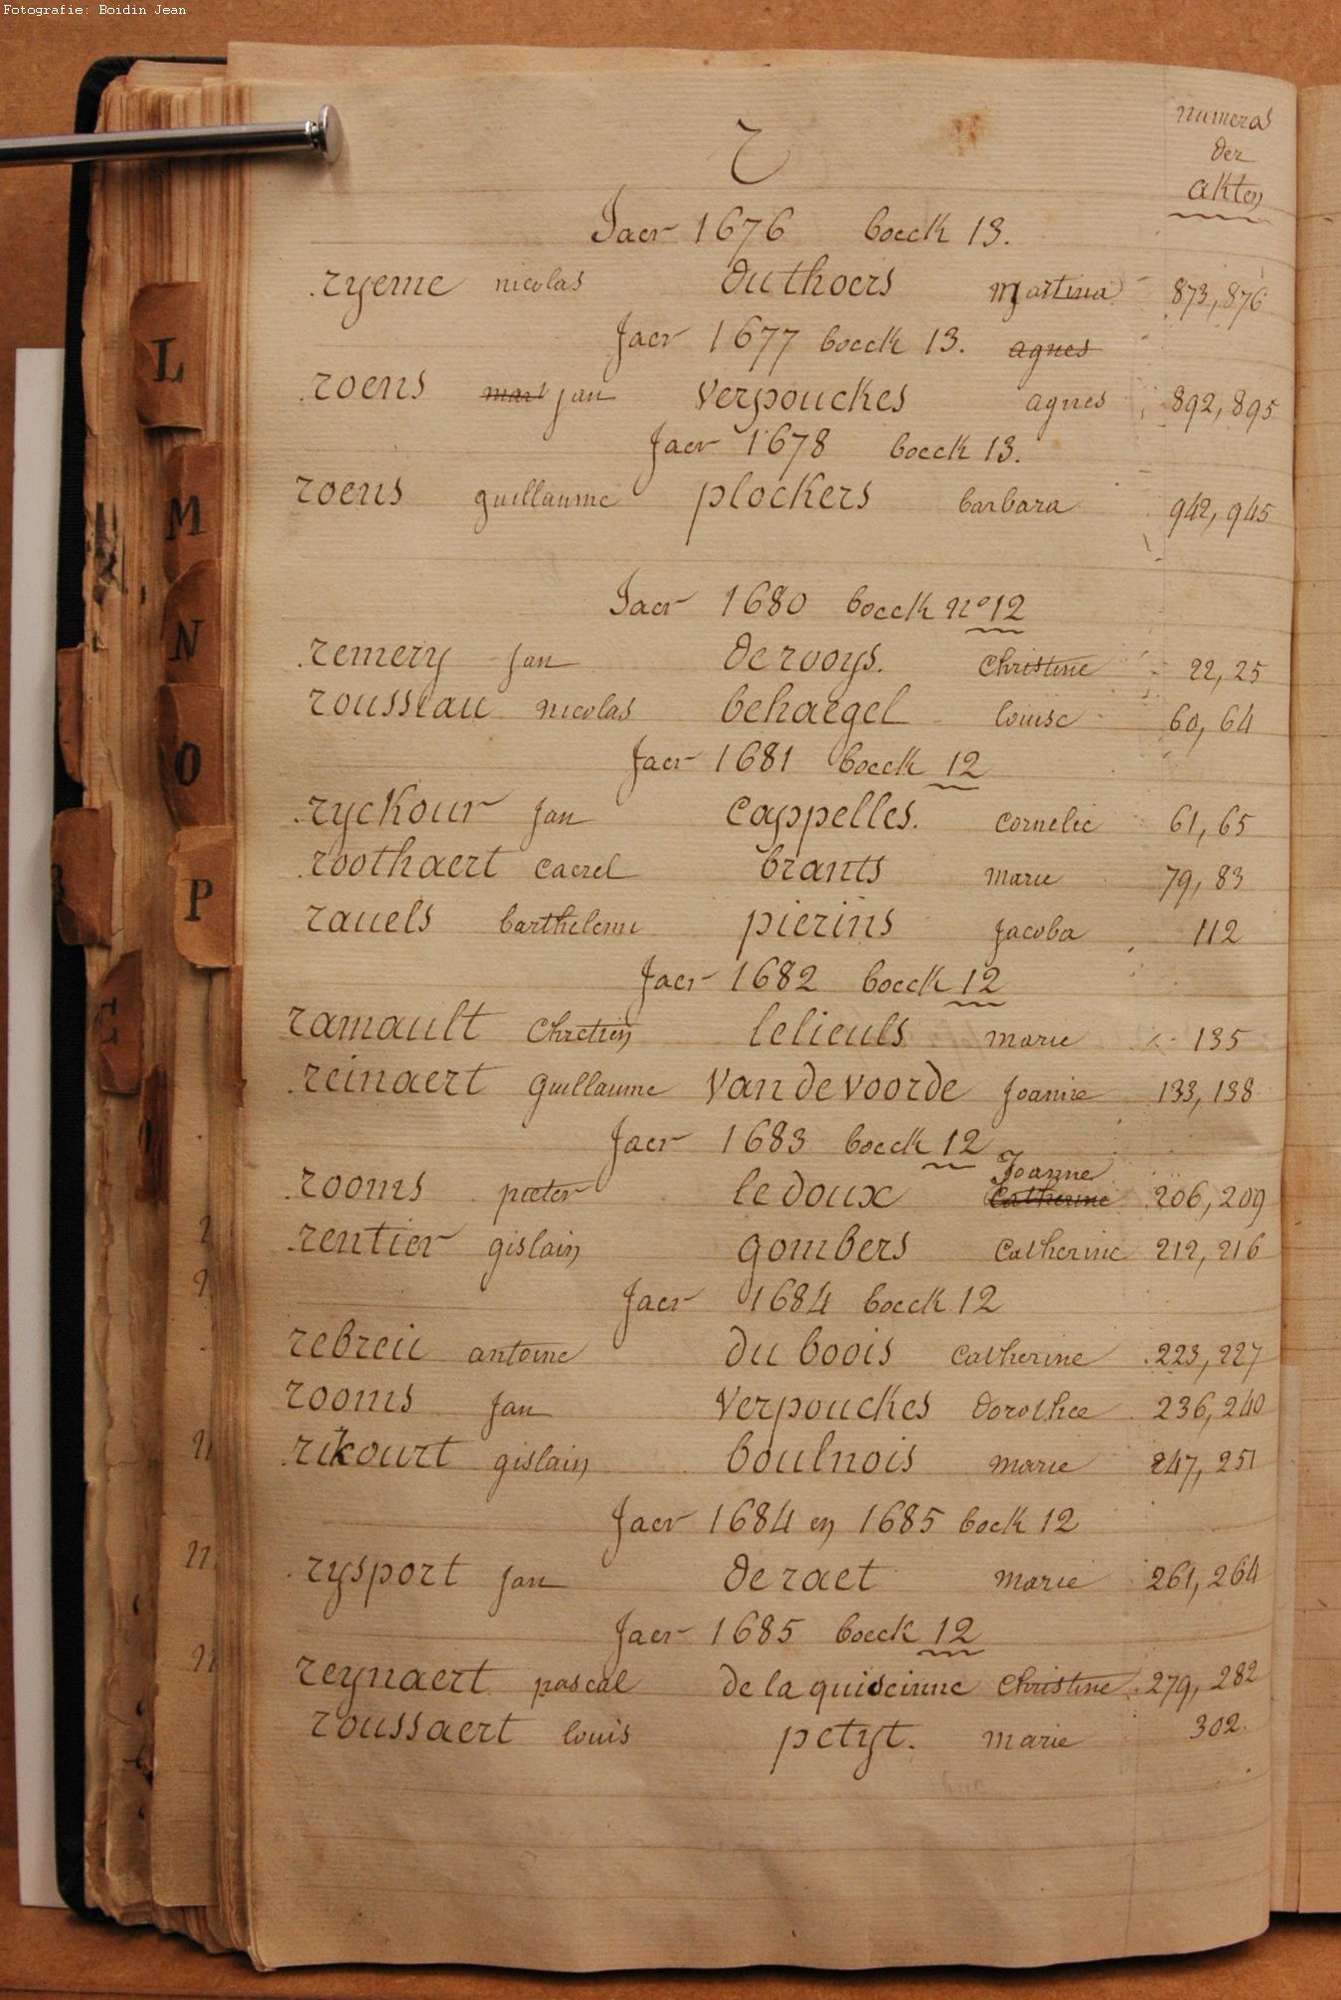 Fotografie: Boidin Jean
numeros
der
akten
r
Jaer 1676 boeck 13.
ryeme nicolas duthoers martina 873, 876
Jaer 1677 boeck 13. agnes
roens mari jan verpouckes agnes 892, 895
Jaer 1678 boeck 13.
roens guillaume plockers barbara 942, 945
Jaer 1680 boeck no 12
remery jan de rooys. christine 22, 25
rousseau nicolas behaegel louise 60, 64
Jaer 1681 boeck 12
ryckour jan cappelles. cornelie 61, 65
roothaert caerel brants marie 79, 83
rauels barthelemi pierins jacoba 112
Jaer 1682 boeck 12
ramault chretien lelieuls marie 135
reinaert guillaume van de voorde joanne 133, 138
Jaer 1683 boeck 12
rooms pieter le doux catherine Joanne 206, 209
rentier gislain gombers catherine 212, 216
Jaer 1684 boeck 12
rebreu antoine du boois catherine 223, 227
rooms jan verpouckes dorothee 236, 240
rikourt gislain boulnois marie 247, 251
Jaer 1684 en 1685 boek 12
rysport jan de raet marie 261, 264
Jaer 1685 boeck 12
reynaert pascal de la quiscinne christine 279, 282
roussaert louis petyt. marie 302.
L
M
N
O
P